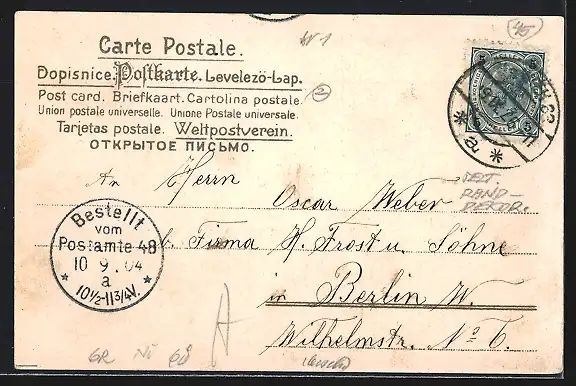 45
No 1
Carte Postale.
Dopisnice. Postkarte. Levelező-Lap.
Post card. Briefkaart. Cartolina postale.
2
Union postale universelle. Unione Postale universale.
Tarjetas postale. Weltpostverein.
ОТКРЫТОЕ ПИСЬМО.
* a *
An Herrn
Oscar Weber
RAND-
DEKOR.
Bestellt
vom
Postamte 48
10 9. 04
a
* 10½-11¾V. *
b. Firma H. Frost u. Söhne
in Berlin W.
Wilhelmstr. No 6.
A
GR